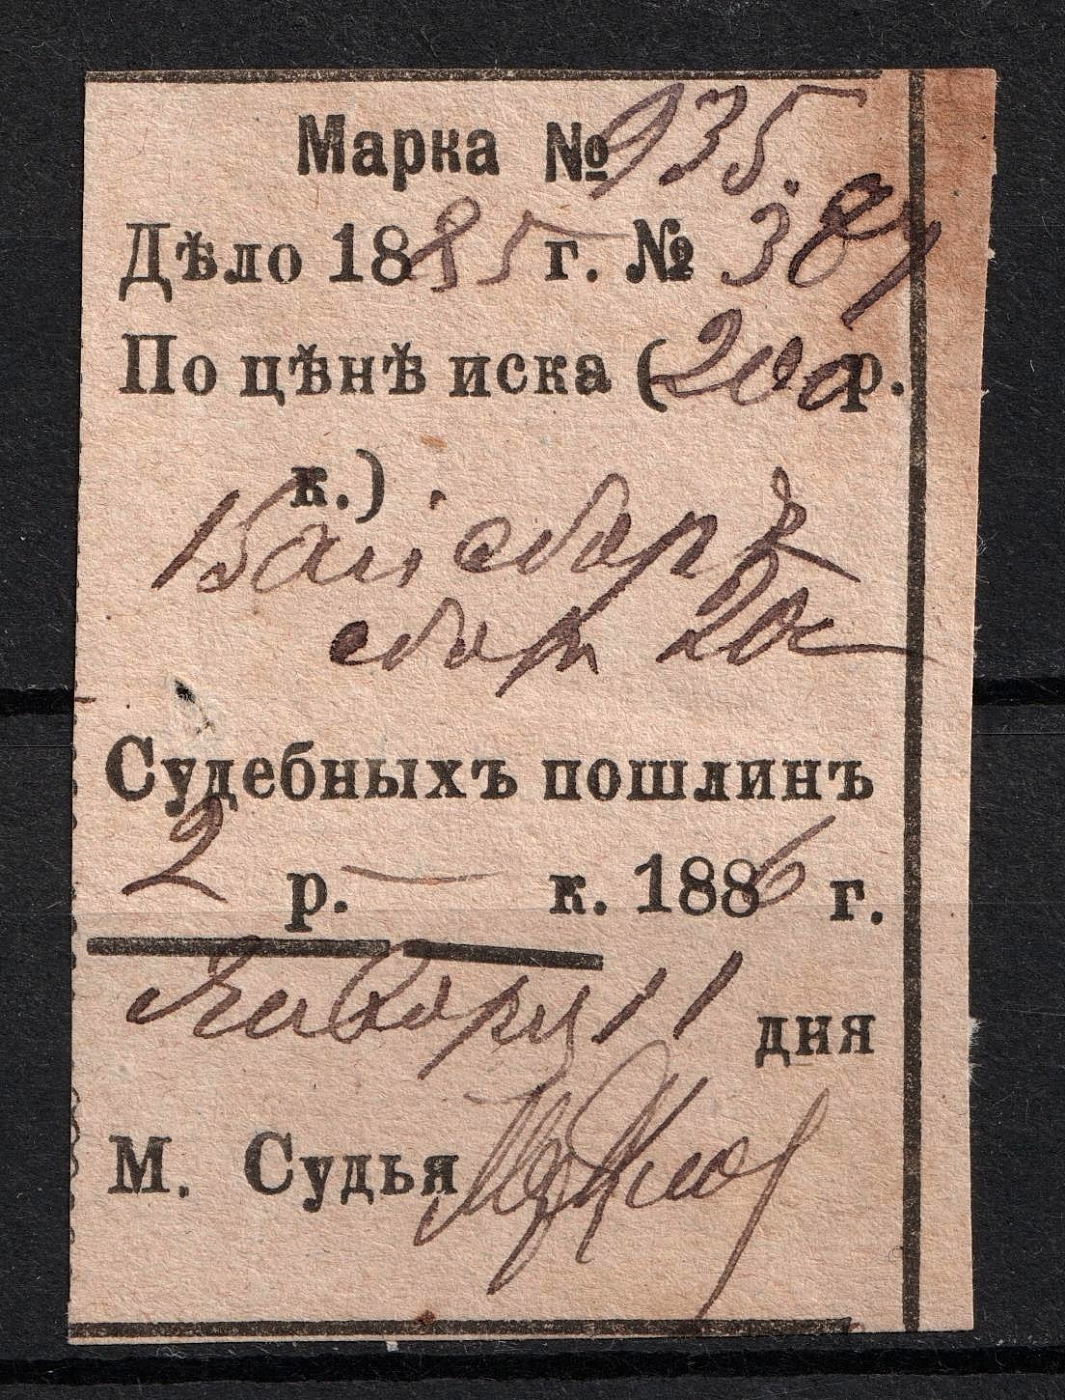 Марка № 935.
Дѣло 1885 г. № 387
По цѣнѣ иска (200 р.
к.)
сборъ
сбор 20к
Судебныхъ пошлинъ
2 р. — к. 1886 г.
Января 11 дня
М. Судья